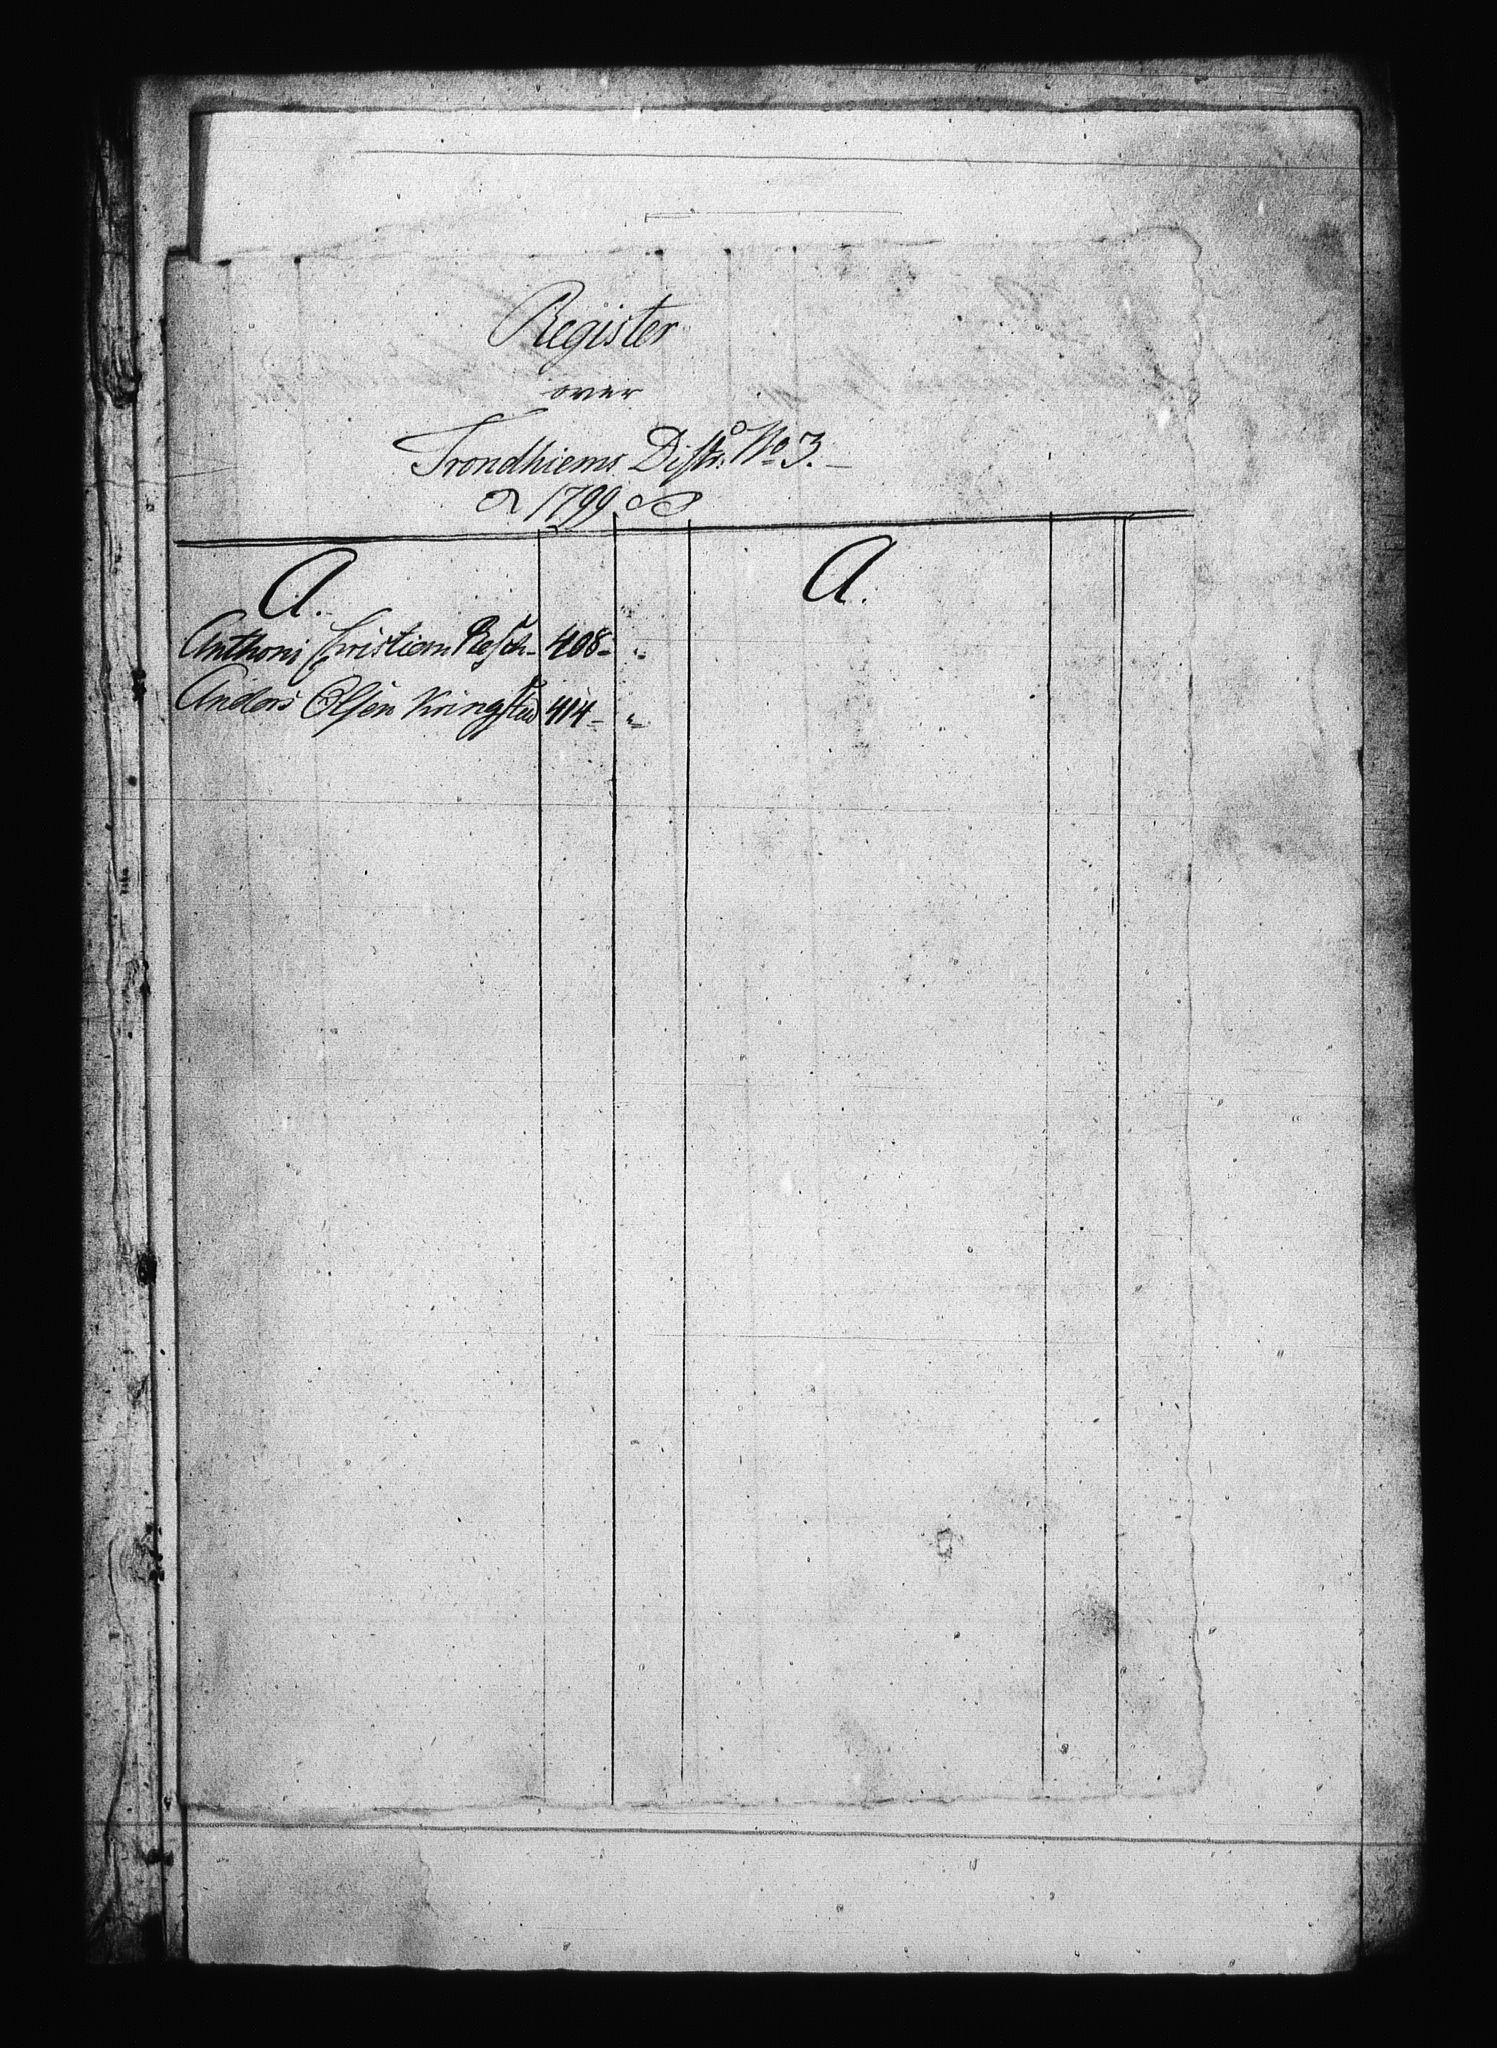 Register
over
Trondhiems Distr: No 3.
1799
A.
A.
Anthoni Christian Resch - 408 - "
Anders Olsen Kringstad 414 - "